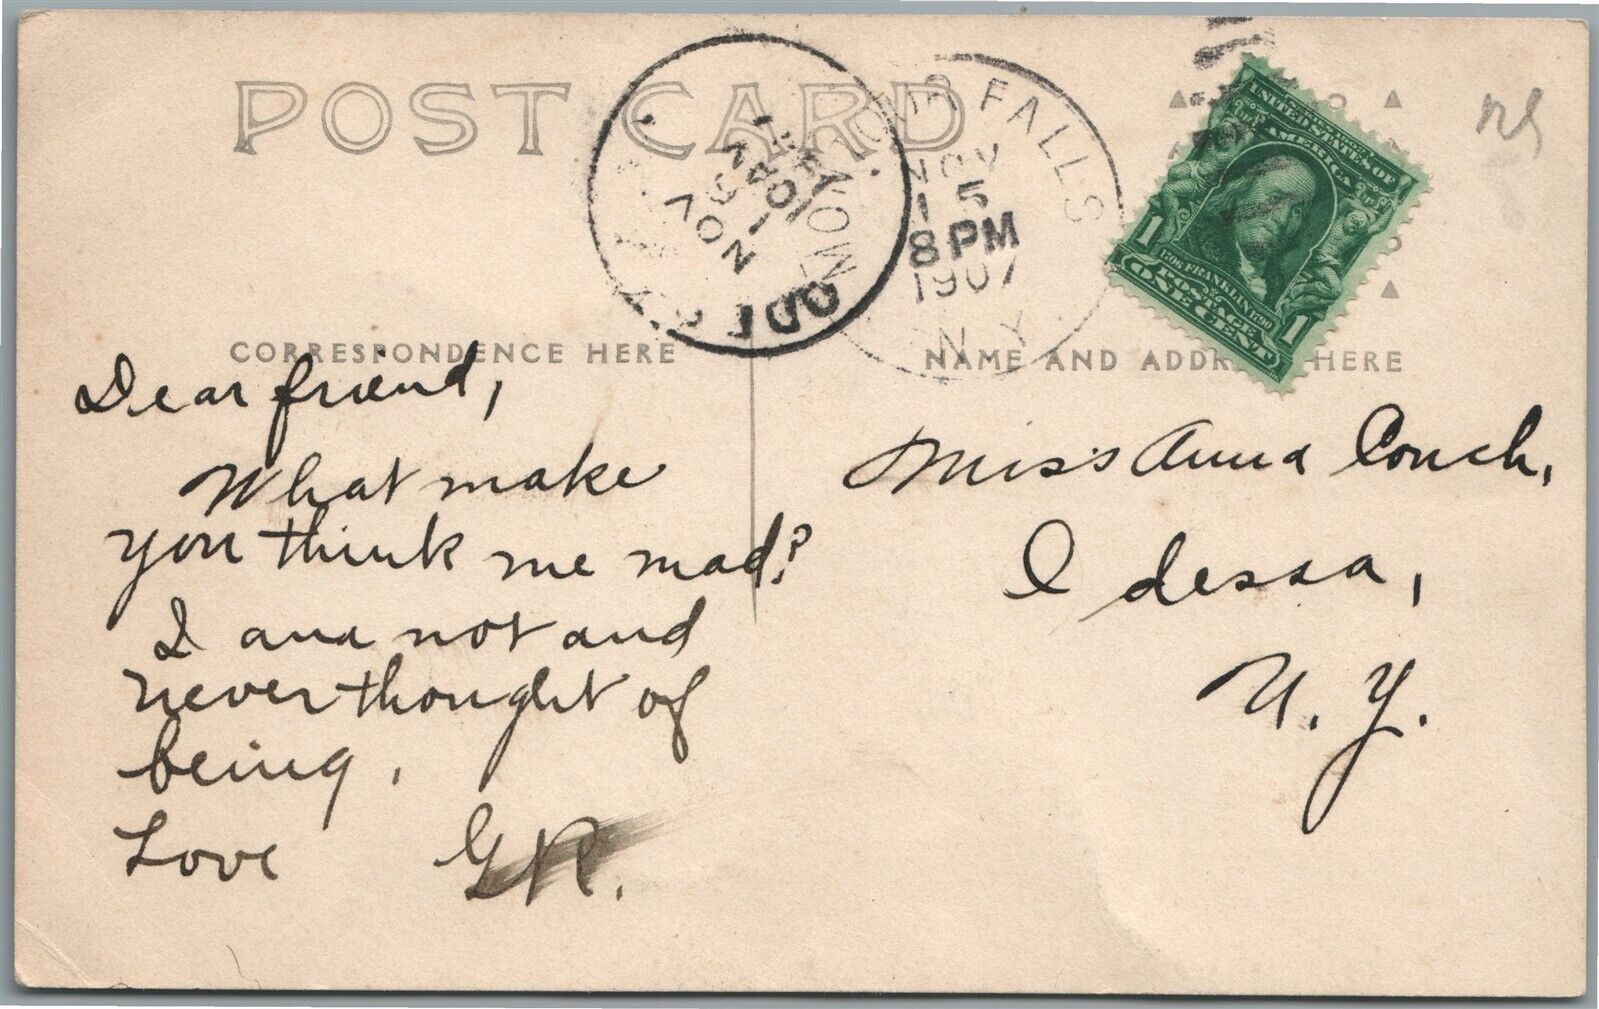 POST CARD
FALLS
NOV
15
8 PM
1907
N.Y.
NOV
ODESSA
UNITED STATES OF
AMERICA
1706 FRANKLIN 1790
1 POSTAGE 1
ONE CENT
CORRESPONDENCE HERE
NAME AND ADDR HERE
Dear friend,
What make
you think me mad?
I am not and
never thought of
being.
Love GR.
Miss Anna Couch,
Odessa,
N. Y.